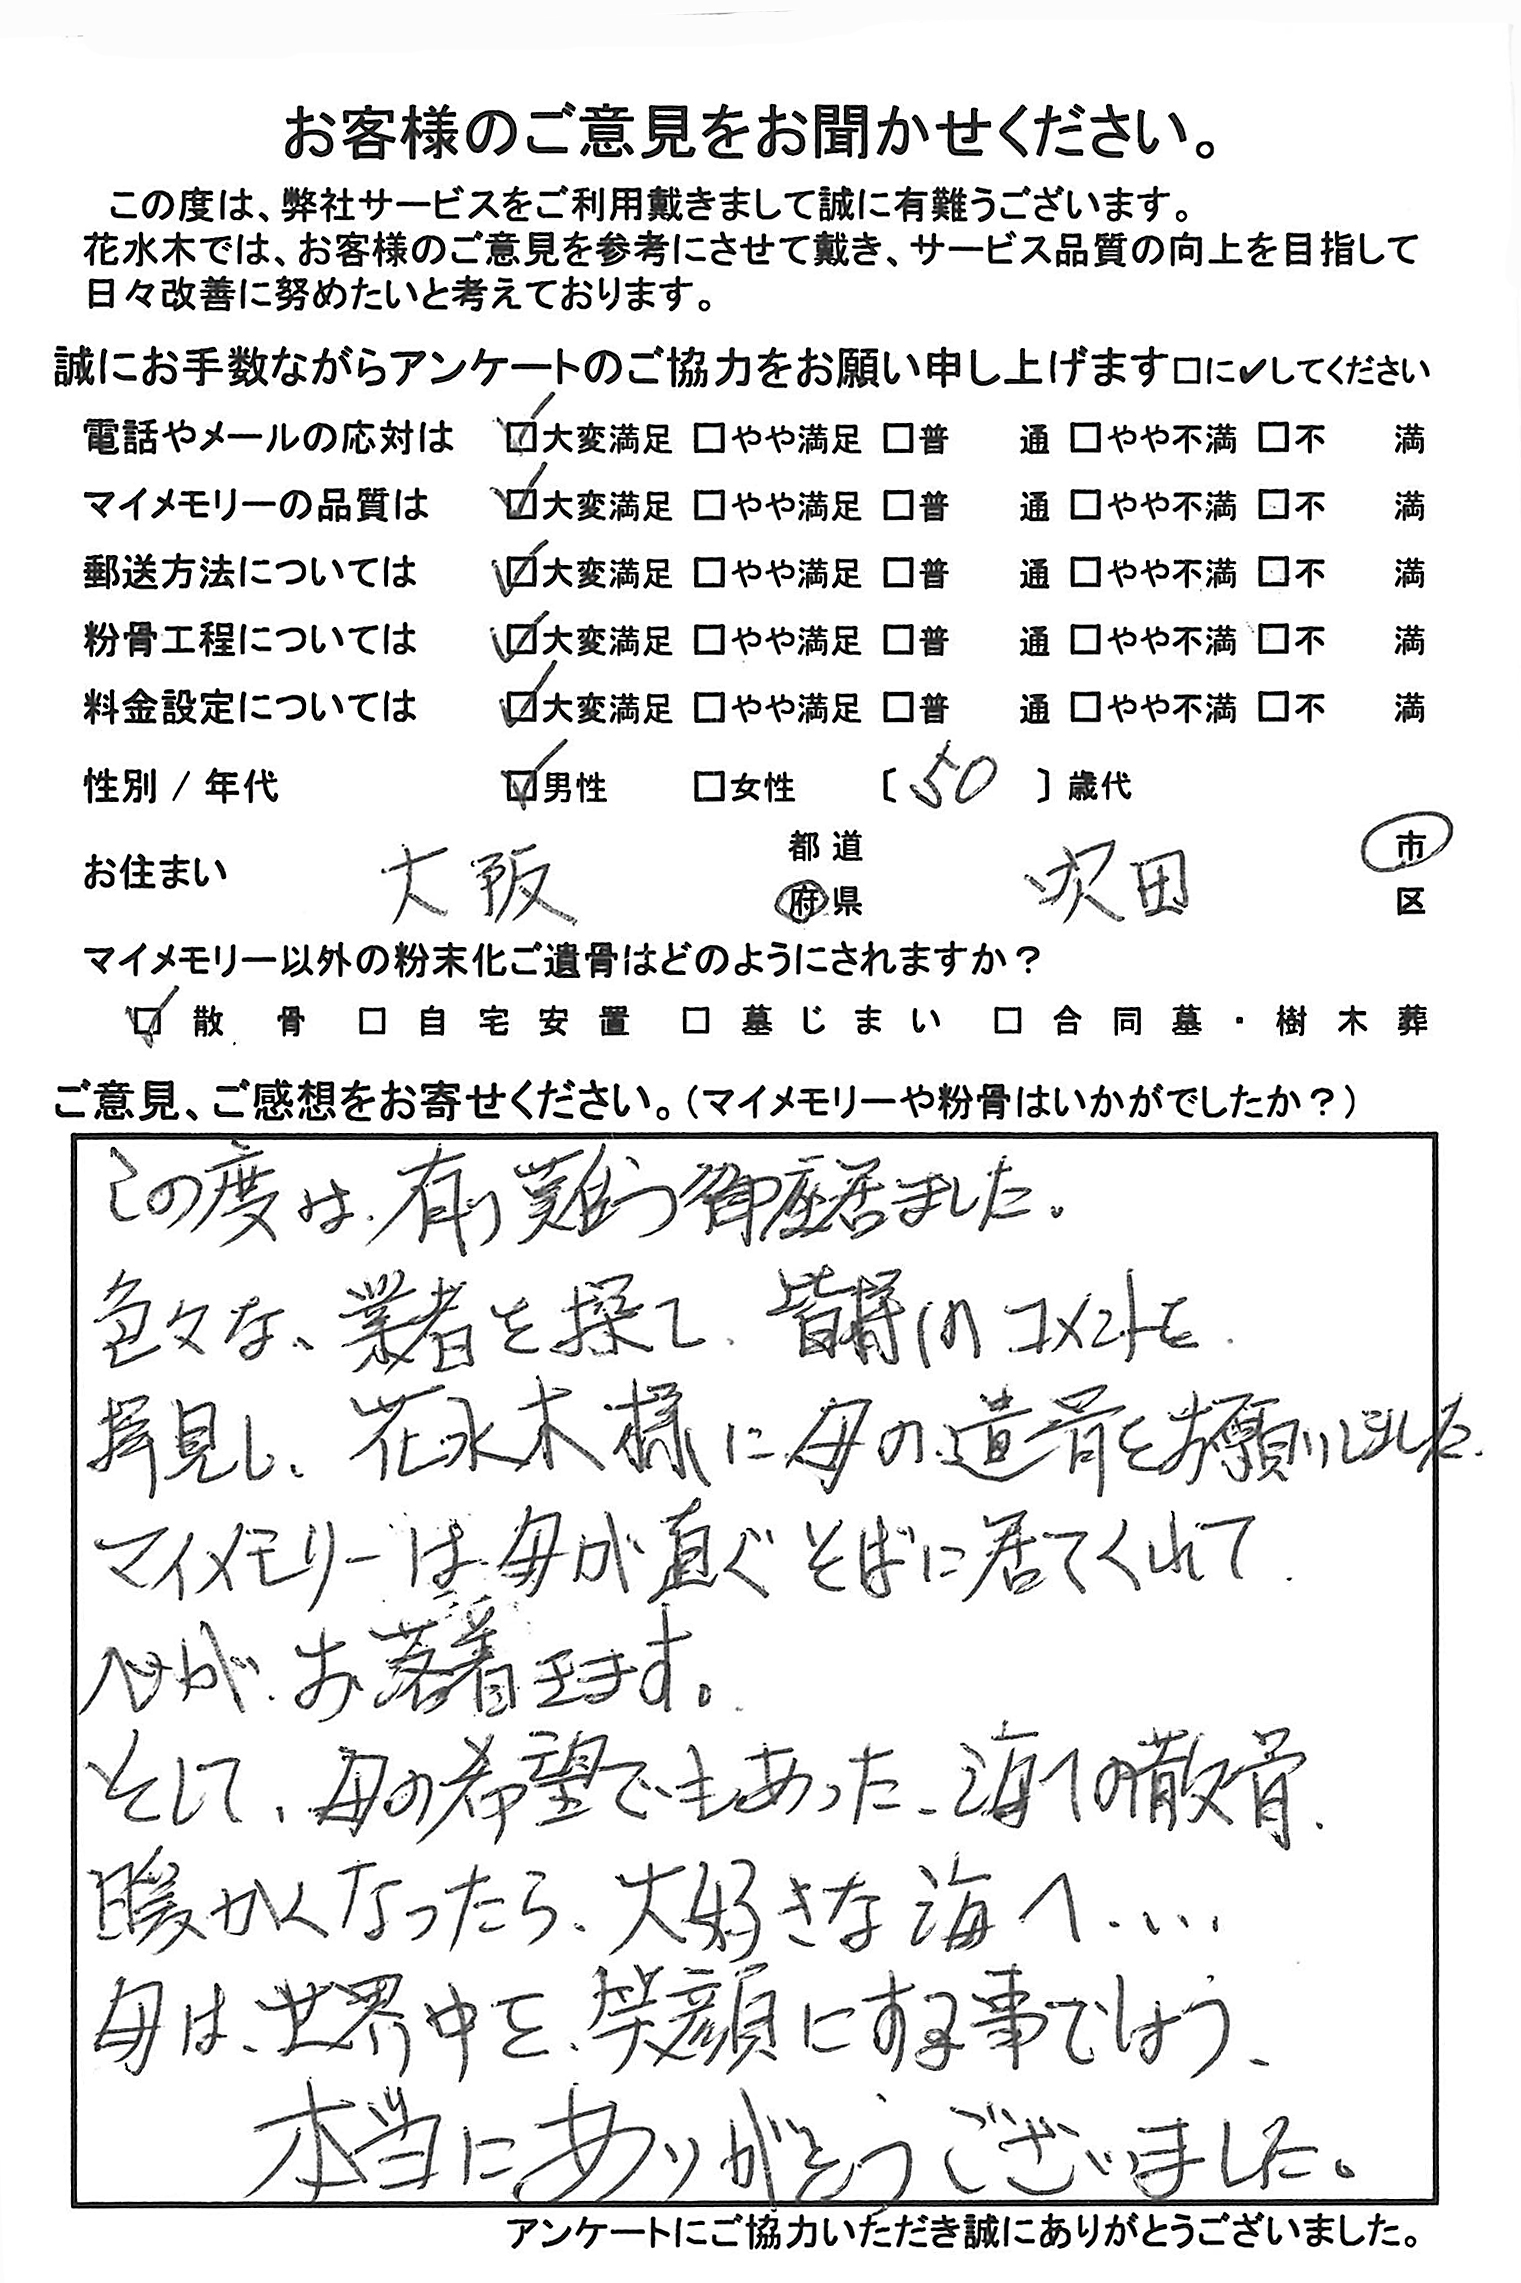 お客様のご意見をお聞かせください。
この度は、弊社サービスをご利用戴きまして誠に有難うございます。
花水木では、お客様のご意見を参考にさせて戴き、サービス品質の向上を目指して
日々改善に努めたいと考えております。
誠にお手数ながらアンケートのご協力をお願い申し上げます□に✔してください
電話やメールの応対は ☑大変満足 □やや満足 □普 通 □やや不満 □不 満
マイメモリーの品質は ☑大変満足 □やや満足 □普 通 □やや不満 □不 満
郵送方法については ☑大変満足 □やや満足 □普 通 □やや不満 □不 満
粉骨工程については ☑大変満足 □やや満足 □普 通 □やや不満 □不 満
料金設定については ☑大変満足 □やや満足 □普 通 □やや不満 □不 満
性別 / 年代 ☑男性 □女性 〔 50 〕歳代
お住まい 大阪 都道府県 吹田 市区
マイメモリー以外の粉末化ご遺骨はどのようにされますか？
☑ 散骨 □ 自宅安置 □ 墓じまい □ 合同墓・樹木葬
ご意見、ご感想をお寄せください。（マイメモリーや粉骨はいかがでしたか？）
この度は、有り難う御座居ました。
色々な、業者を探して、皆様のコメントを、
拝見し、花水木様に母の遺骨をお願いしました。
マイメモリーは母が直ぐそばに居てくれて、
心が、お落着きます。
そして、母の希望でもあった、海への散骨、
暖かくなったら、大好きな海へ....
母は、世界中を、笑顔にする事でしょう、
本当にありがとうございました。
アンケートにご協力いただき誠にありがとうございました。